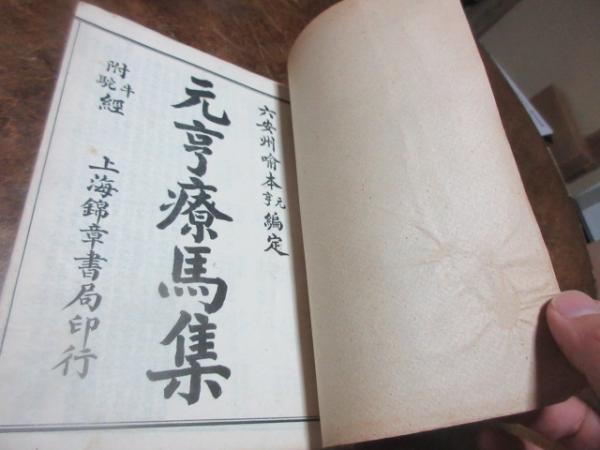 六安州喻本元亨編定
元亨療馬集
附牛駝經
上海錦章書局印行